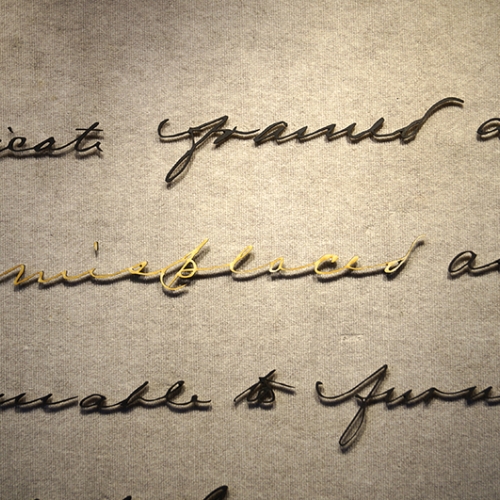 icate framed a
misplaced a
unable to furn